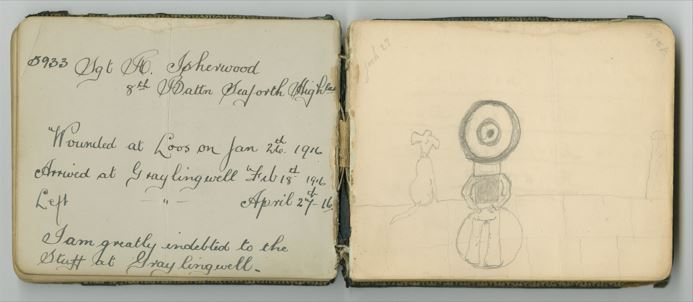 5933 Sgt A. Isherwood
8th Battn Seaforth Highrs
"Wounded at Loos on Jan 26th. 1916
Arrived at Graylingwell Feb 18th 1916
Left - " - April 27th 16
I am greatly indebted to the
Staff at Graylingwell.